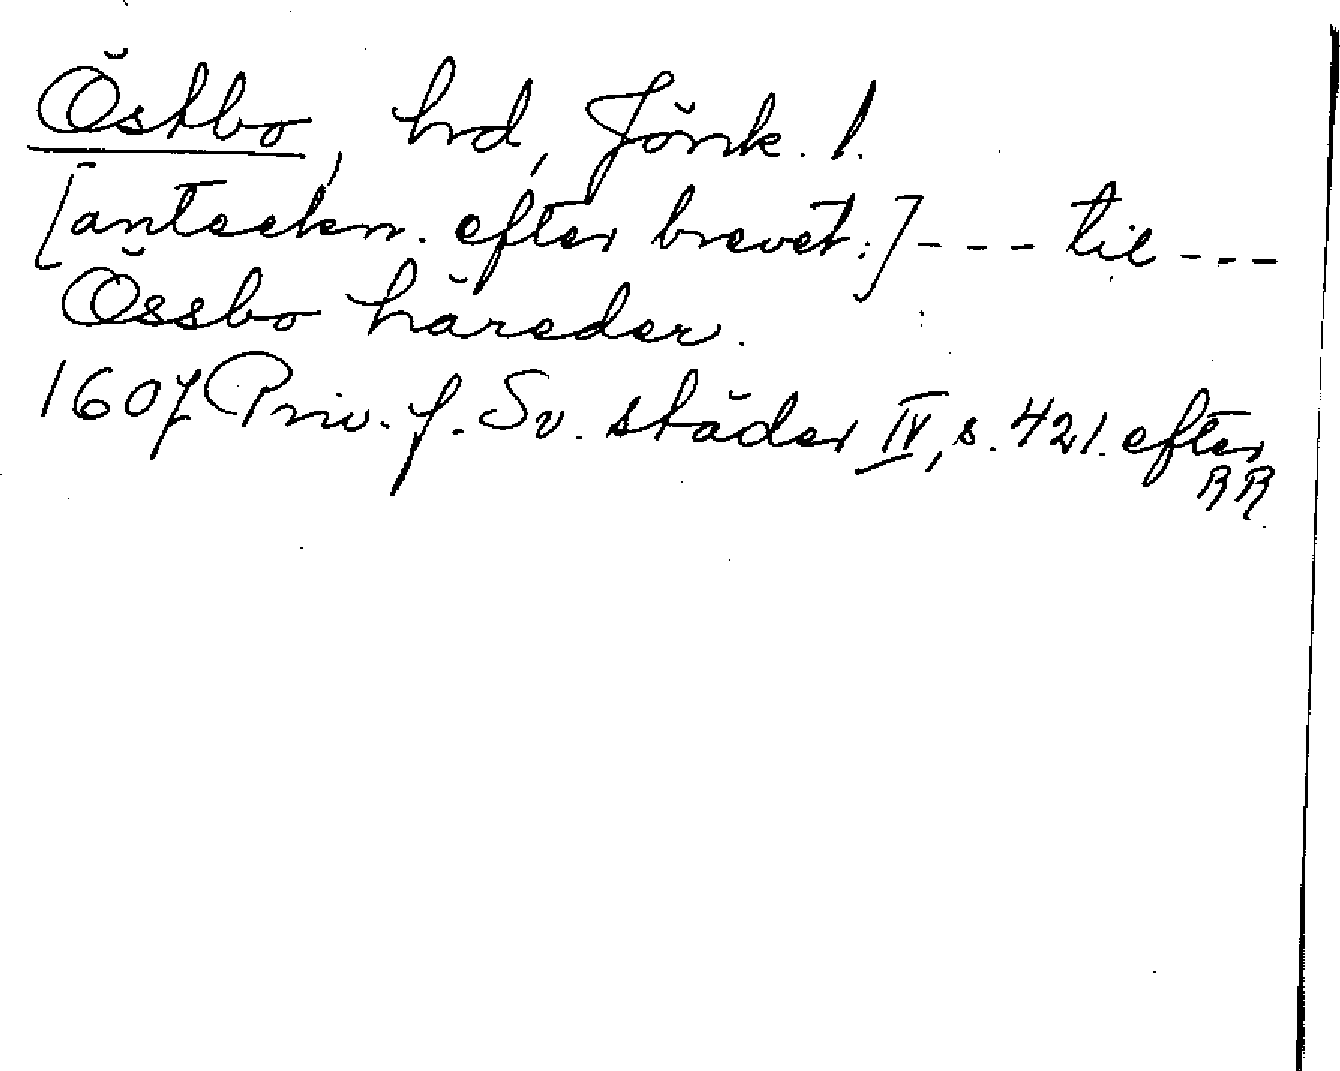 Östbo, hrd, Jönk. l.
[anteckn. efter brevet:] - - - til - - -
Össbo häreder.
1607 Priv. f. Sv. städer IV, s. 421. efter
RR.